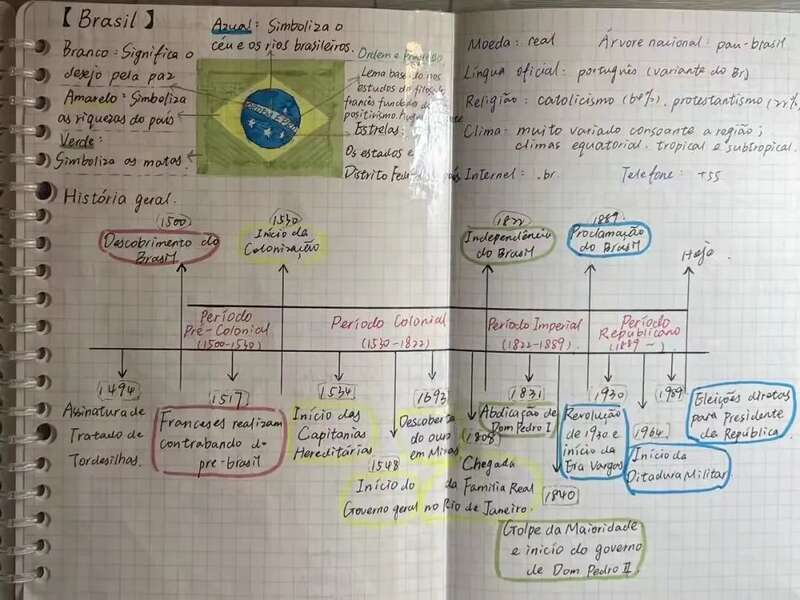 【Brasil】
Branco: Significa o
desejo pela paz
Amarelo: Simboliza
as riquezas do país
Verde:
Simboliza as matas.
Azual: Simboliza o
céu e os rios brasileiros.
Ordem e Progresso
Lema baseado nos
estudos do filósofo
francês fundador do
positivismo.
Estrelas:
Os estados e
Distrito Federal
Moeda: real
Árvore nacional: pau-brasil
Língua oficial: português (variante do Br)
Religião: catolicismo (64%). protestantismo (22%)
Clima: muito variado consoante a região;
climas equatorial. tropical e subtropical.
Internet: .br
Telefone: +55
História geral.
1500
Descobrimento do
Brasil
1530
Início da
Colonização
1822
Independência
do Brasil
1889
Proclamação
do Brasil
Hoje
Período
Pré-Colonial
(1500-1530)
Período Colonial
(1530-1822)
Período Imperial
(1822-1889)
Período
Republicano
(1889 ~ )
1494
Assinatura de
Tratado de
Tordesilhas.
1517
Franceses realizam
contrabando do
pre-brasil
1534
Início das
Capitanias
Hereditárias
1548
Início do
Governo geral
1693
Descoberta
do ouro
em Minas
1808
Chegada
da Família Real
no Rio de Janeiro.
1831
Abdicação de
Dom Pedro I
1840
Golpe da Maioridade
e inicio do governo
de Dom Pedro II.
1930
Revolução
de 1930 e
início da
Era Vargas
1964
Início da
Ditadura Militar
1989
Eleições diretas
para Presidente
da República.